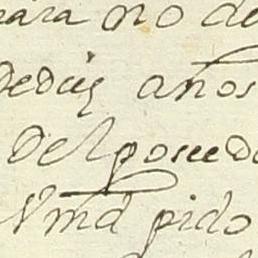 para no de
dediez años
del poseedo
Vmd pido